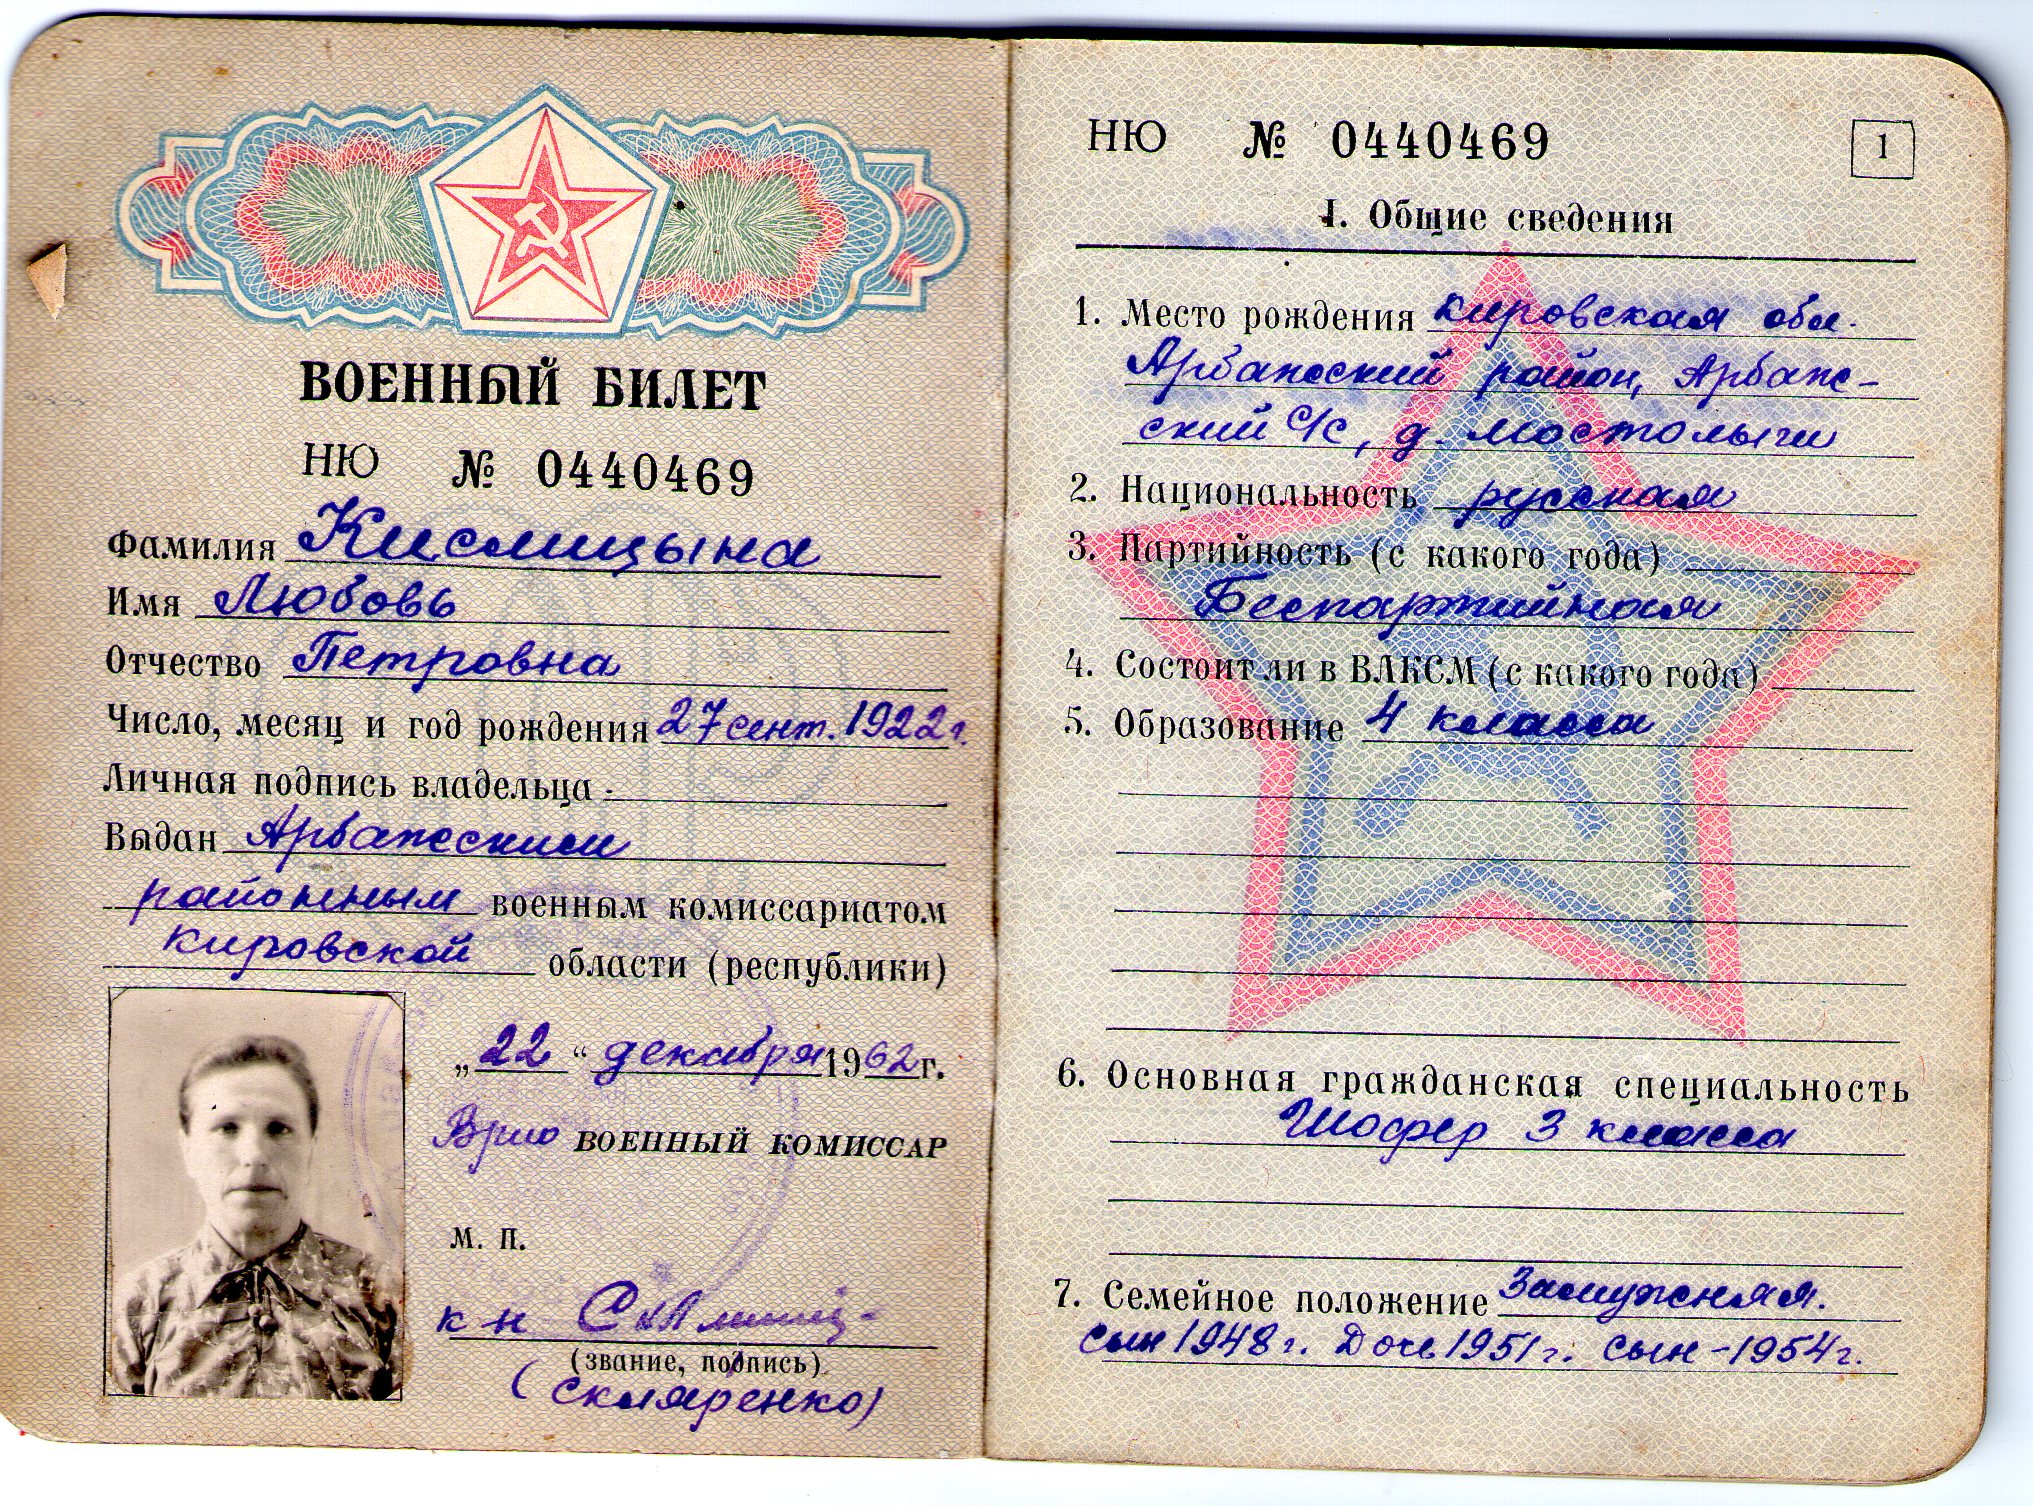 ВОЕННЫЙ БИЛЕТ
НЮ № 0440469
Фамилия Кислицына
Имя Любовь
Отчество Петровна
Число, месяц и год рождения 27 сент. 1922 г.
Личная подпись владельца -
Выдан Арбажским
районным военным комиссариатом
Кировской области (республики)
„22“ декабря 1962 г.
Врио ВОЕННЫЙ КОМИССАР
М. П.
к-н
(звание, подпись)
(Скляренко)
НЮ № 0440469
1
I. Общие сведения
1. Место рождения Кировская обл.
Арбажский район, Арбаж-
ский С/С, д. Мостолыги
2. Национальность русская
3. Партийность (с какого года)
Беспартийная
4. Состоит ли в ВЛКСМ (с какого года)
5. Образование 4 класса
6. Основная гражданская специальность
Шофер 3 класса
7. Семейное положение Замужняя.
сын 1948 г. Дочь 1951 г. сын - 1954 г.